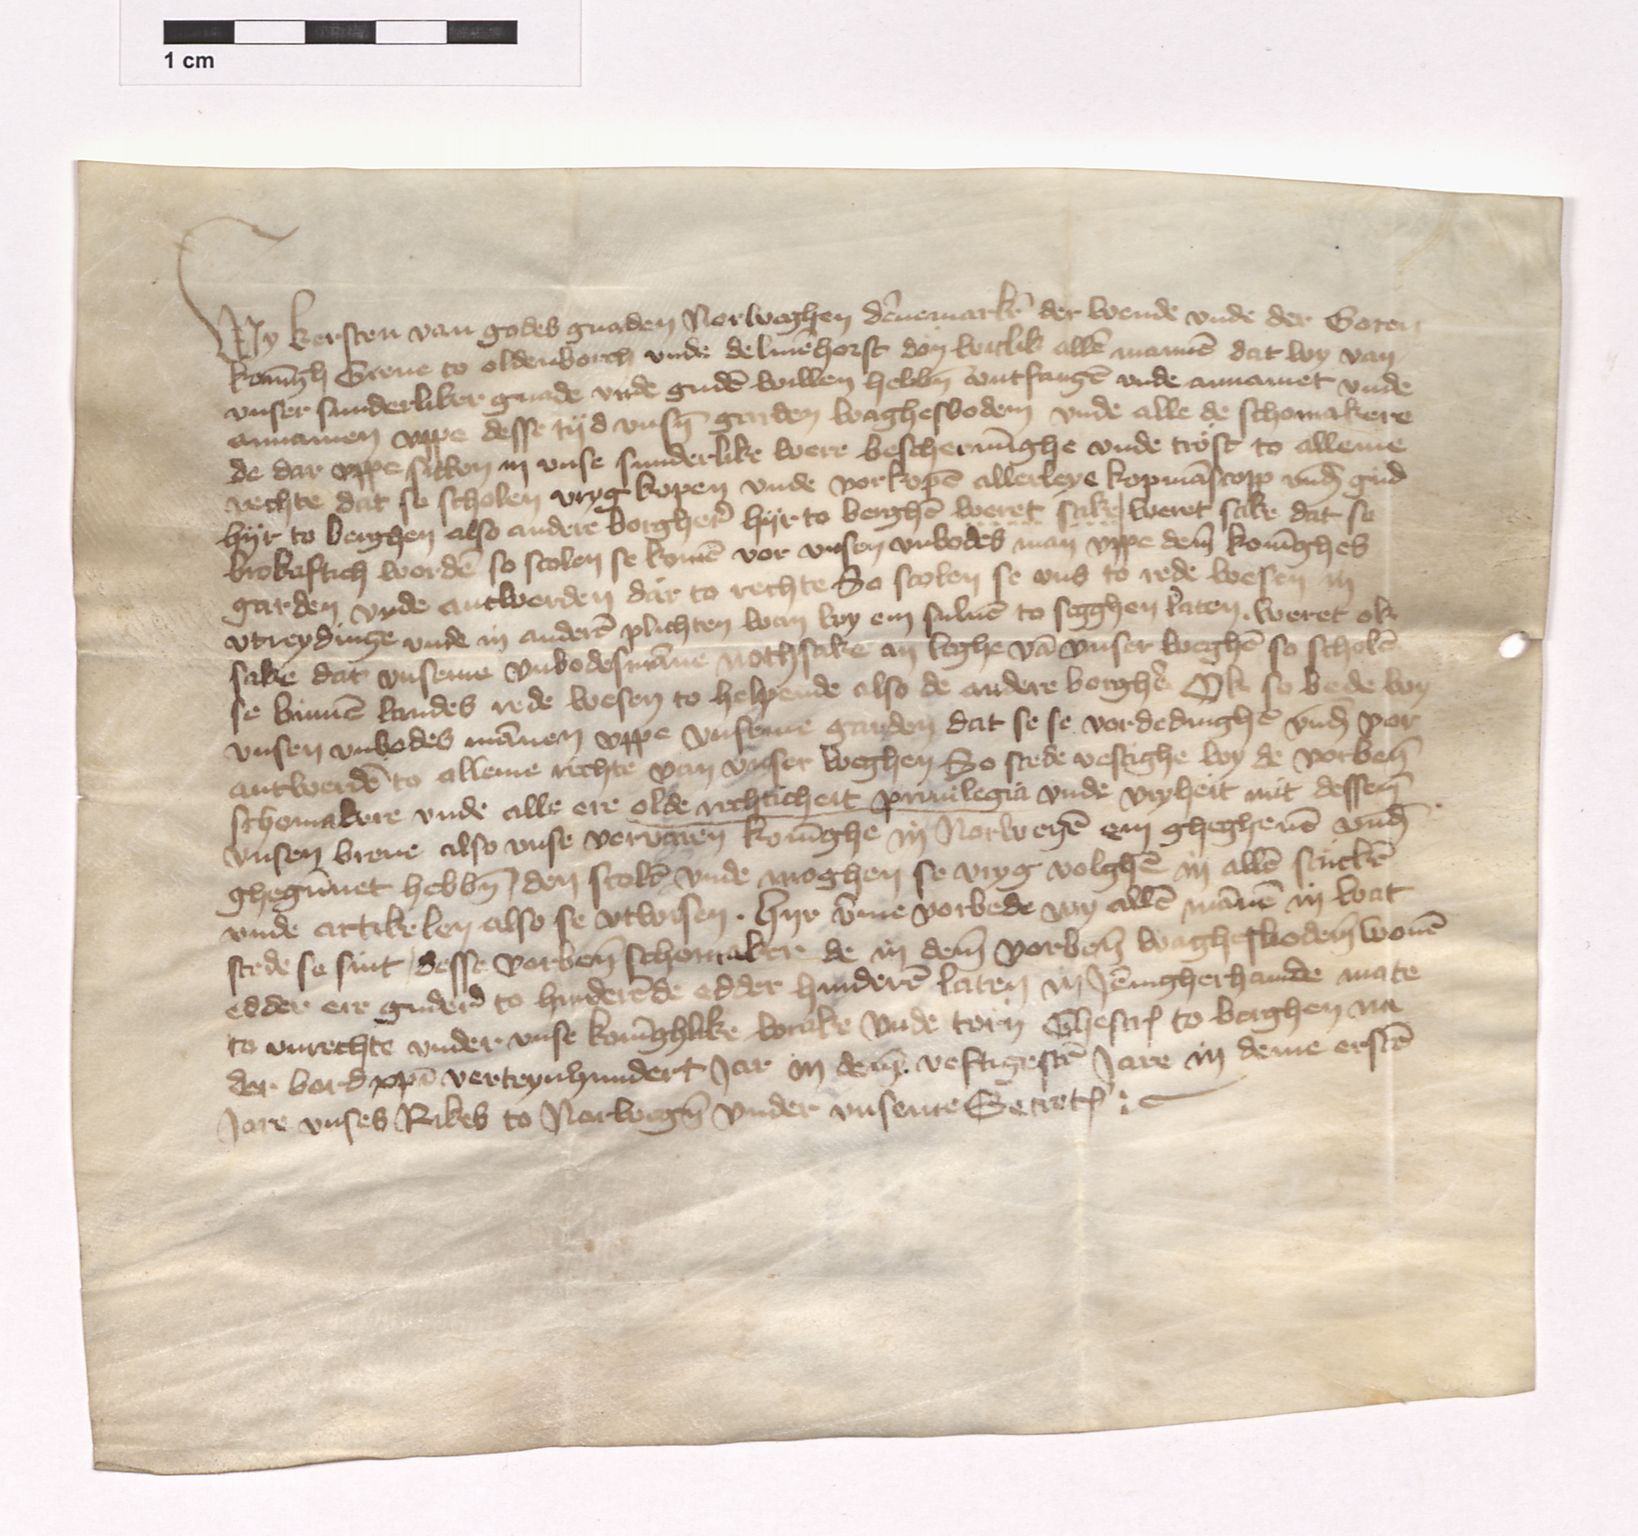 1 cm
Wy kersten van godes gnaden Norweghen dēnemarkē der wende vnde der Goten
konīgh Greue to oldenborch vnde delmēhorst dōn witlik allē mannē dat wy van
vnser sunderliker gnade vnde gudē willen hebbn̄ vntfangē vnde annamet vnde
annamen vppe desse tijd vnsn̄ garden waghesbodem vnde alle de schomakere
de dar vppe sitten in vnse sunderlike were beschermīghe vnde trost to alleme
rechte dat se scholen vryg kopen vnde vorkopē allerleye kopmāscopp vnd̄ gud
hijr to berghen also andere borgher̄ hijr to berghē weret sake weret sake dat se
brokaftich wordē so scolen se komē vor vnsen vnbodes man vppe dem̄ konīghes
garden vnde antworden dar to rechte So scolen se vns to rede wesen in
vtreydinge vnde in anderē plichten wan wy em suluē to segghen laten. weret ok
sake dat vnseme vnbodesmāne nothsake an leghe vā vnser weghē so scholē
se binnē landes rede wesen to helpende also de andere borgher̄ Ok so bede wy
vnsen vnbodes mānen vppe vnseme garden dat se se vordedinghē vnd̄ vor
antwerdē to alleme rechte van vnser weghen So stede vestighe wy de vorben̄
schomakere vnde alle ere olde rechticheit priuilegia vnde vryheit mit dessem̄
vnsen breue also vnse vorvaren konīghe in Norwegē em ghegheuē vnd̄
ghegūnet hebbn̄ den scolē vnde moghen se vryg volghē in allē stuckē
vnde artikelen also se vtwisen. Hijr v̄me vorbede wy allē mānē in wat
stede se sint desse vorben̄ schomaker de in dem̄ vorben̄ waghesbodem̄ wonē
edder ere guder̄ to hinderēde edder hinderē laten in jēnigherhande mate
to vnrechte vnder vnse konīghlike wrake vnde torn Ghescr̄ to berghen na
der bord xpī verteynhundert Jar in dem̄ veftigestē Jare in deme erstē
Jare vnses Rikes to Norwegn̄ vnder vnseme Secret̄